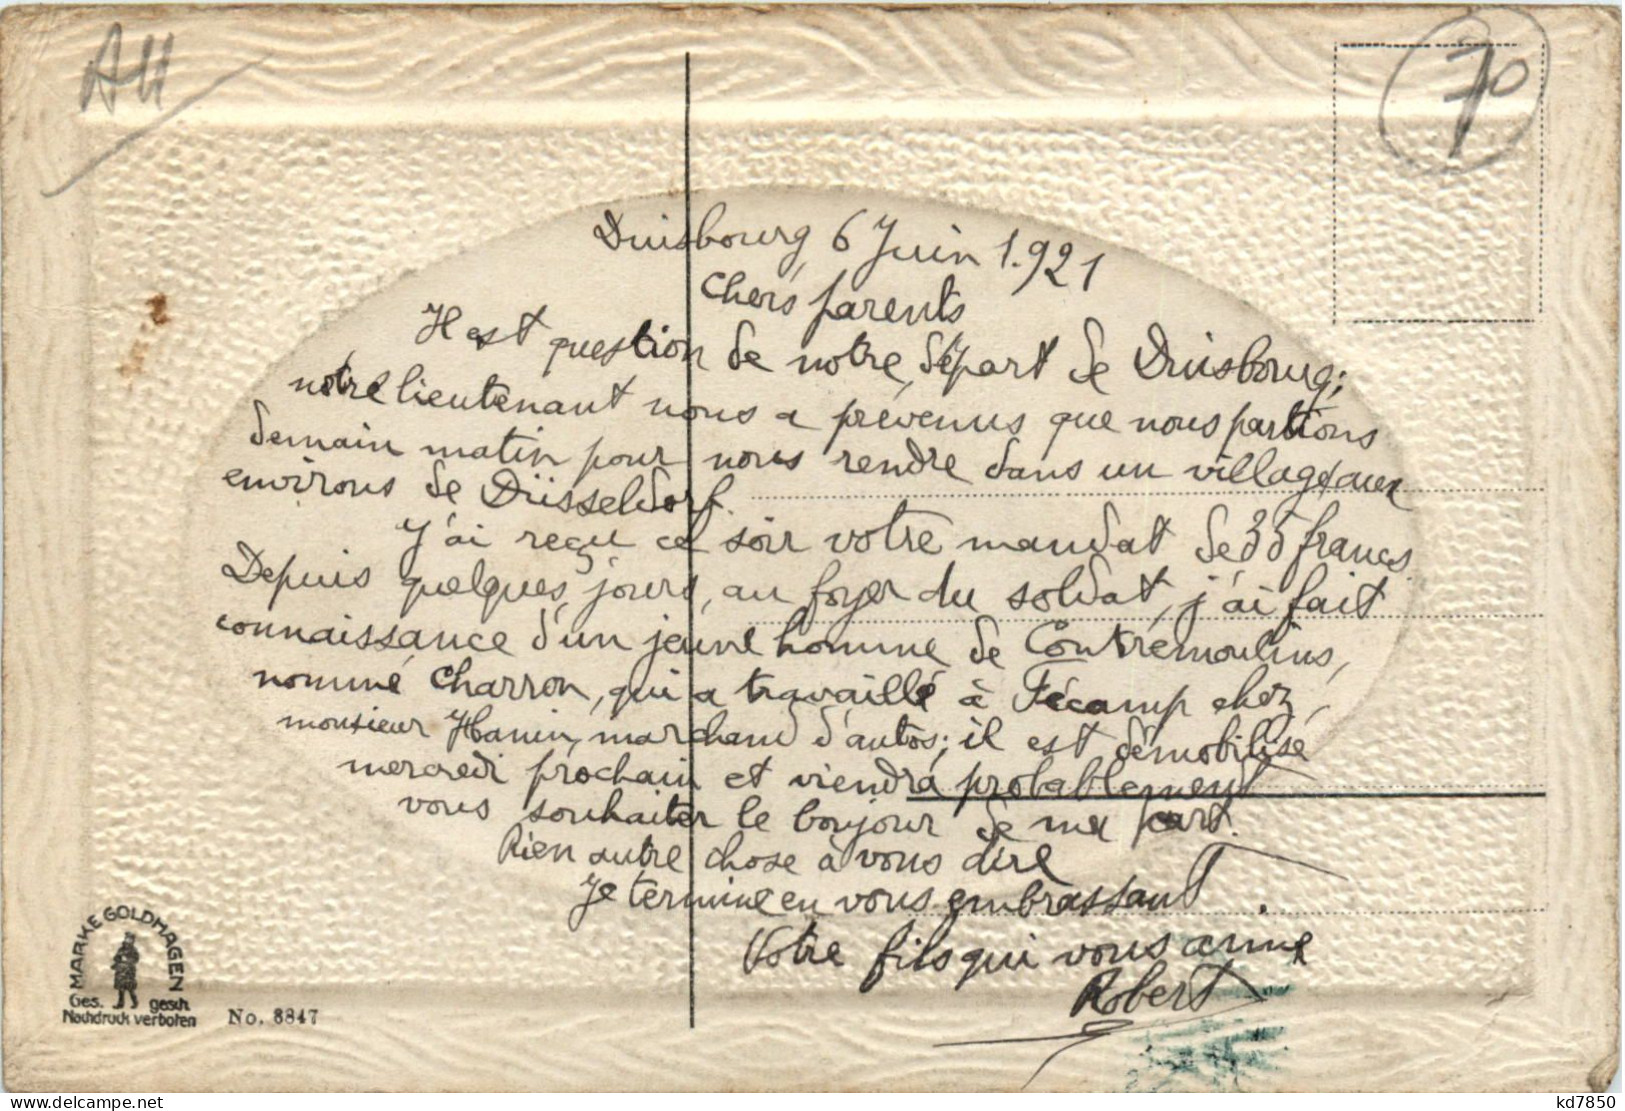 AH
70
Duisbourg 6 Juin 1.921
Chers parents
Il est question de notre départ de Duisbourg;
notre lieutenant nous a prévenus que nous partions
demain matin pour nous rendre dans un village aux
environs de Düsseldorf.
J'ai reçu ce soir votre mandat de 35 francs.
Depuis quelques jours, au foyer du soldat, j'ai fait
connaissance d'un jeune homme de Contrémoulins,
nommé Charron, qui a travaillé à Fécamp chez
monsieur Hanin, marchand d'autos; il est démobilisé
mercredi prochain et viendra probablement
vous souhaiter le bonjour de ma part.
Rien autre chose à vous dire
Je termine en vous embrassant.
Votre fils qui vous aime
Robert
MARKE GOLDMAGEN
Ges. gesch.
Nachdruck verboten
No. 8847
delcampe.net
kd7850